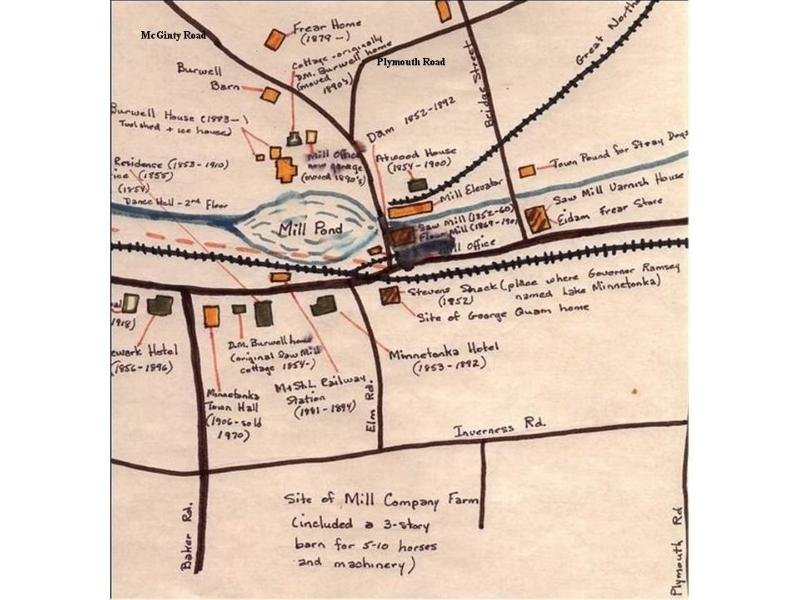 McGinty Road
Frear Home
(1879 - )
Cottage - originally
D.M. Burwell home
(moved
1890's)
Plymouth Road
Bridge Street
Great North
Burwell
Barn
Burwell House (1883 - )
Tool shed + ice house)
Mill Office
now garage
(moved 1890's)
Dam 1852-1892
Atwood House
(1854 - 1900)
Mill Elevator
Town Pound for Stray Dogs
Residence (1853-1910)
ice (1855)
Dance Hall - 2nd Floor
Mill Pond
Saw Mill (1852-60)
Flour Mill (1869-190
ll Office
Saw Mill Varnish House
Eidam Frear Store
Stevens Shack (place where Governor Ramsey
(1852) named Lake Minnetonka)
Site of George Quam home
al
1918)
ewark Hotel
(1856-1896)
Minnetonka
Town Hall
(1906-sold
1970)
D.M. Burwell house
(original Saw Mill
cottage 1854-)
M+St.L Railway
Station
(1881-1894)
Minnetonka Hotel
(1853-1892)
Elm Rd.
Inverness Rd.
Baker Rd.
Plymouth Rd
Site of Mill Company Farm
(included a 3-story
barn for 5-10 horses
and machinery)